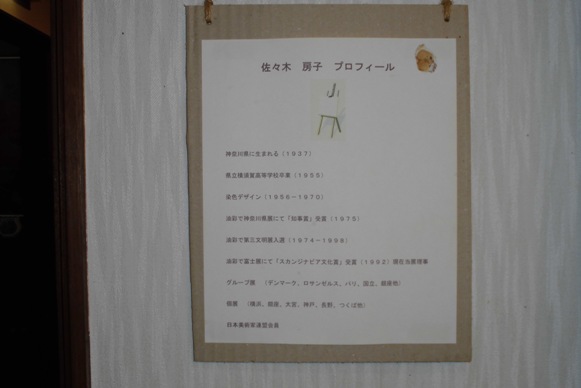 佐々木 房子 プロフィール
神奈川県に生まれる（1937）
県立横須賀高等学校卒業（1955）
染色デザイン（1956－1970）
油彩で神奈川県展にて「知事賞」受賞（1975）
油彩で第三文明展入選（1974－1989）
油彩で富士展にて「スカンジナビア文化賞」受賞（1992）現在当展理事
グループ展 （デンマーク、ロサンゼルス、パリ、国立、銀座他）
個展 （横浜、銀座、大宮、神戸、長野、つくば他）
日本美術家連盟会員